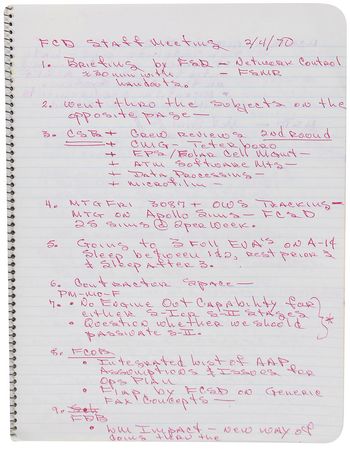 FCD Staff Meeting 3/4/70
1. Briefing by FSR - Network Control
≈30 min with - FSNR
handouts.
2. Went thro the subjects on the
opposite page -
3. CSB + Crew Reviews 2nd Round
+ CMG - Teterboro
+ EPS/Solar Cell Mgmt -
+ ATM Software Mtg -
+ Data Processing -
+ Microfilm -
4. MTG FRI 3087 + OWS Tracking -
MTG on Apollo Sims - FCSD
25 sims @ 2 per week.
5. Going to 3 Full EVA's on A-14
Sleep between 1&2, rest prior 3
& sleep after 3.
6. Contractor Space -
PM-MO-F
7. • No Engine Out Capability for
either S-I or S-II Stages
• Question whether we should
passivate S-II.
8. FCOB
• Integrated list of AAP
Assumptions & Issues for
Ops Plan
• Flap by FCSD on Generic
Fax Concepts -
9.
FDB
• WM Impact - new way of
doing thru the